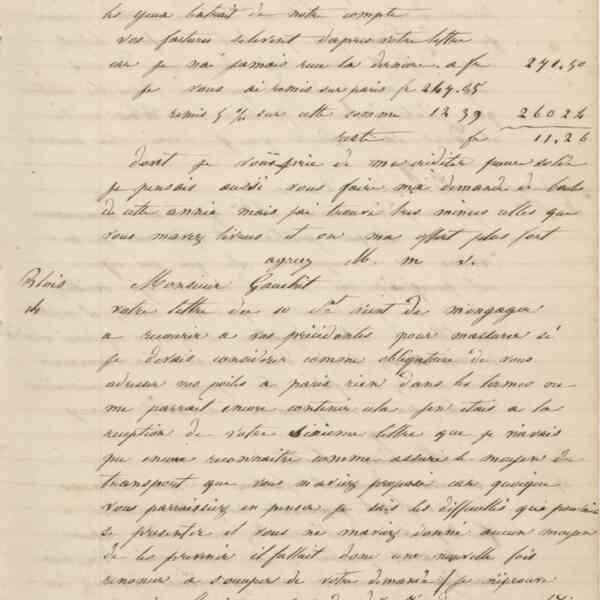 les yeux l'extrait de notre compte
vos factures s'elevent d'apres votre lettre
car je n'ai jamais recu la derniere a fr 271.50
je vous ai remis sur paris fr 247.85
remis 5 % sur cette somme 12 39 260 24
reste fr 11.26
dont je vous prie de me créditer pour solde
je pensais aussi vous faire ma demande de
de cette année mais j'ai trouvé bien minces celles que
vous m'avez livrés et on m'a offert plus fort
agreez M. m s.
Blois Monsieur Gauchit
votre lettre du 10 vient de m'engager
a recourir a vos précédentes pour m'assurer si
je devais considérer comme obligatoire de vous
adresser mes a paris rien dans les termes ne
me parrait encore contenir cela j'en etais a la
reception de votre sixieme lettre que je n'avais
pu encore reconnaitre comme assuré le moyen de
transport que vous m'aviez proposé car quoique
vous parraissiez en penser je sais les difficultés qui pouvaient
se presenter et vous ne m'aviez donné aucun moyen
de les prevenir il fallait donc une nouvelle fois
renoncer a s'occuper de votre demande je n'eprouve